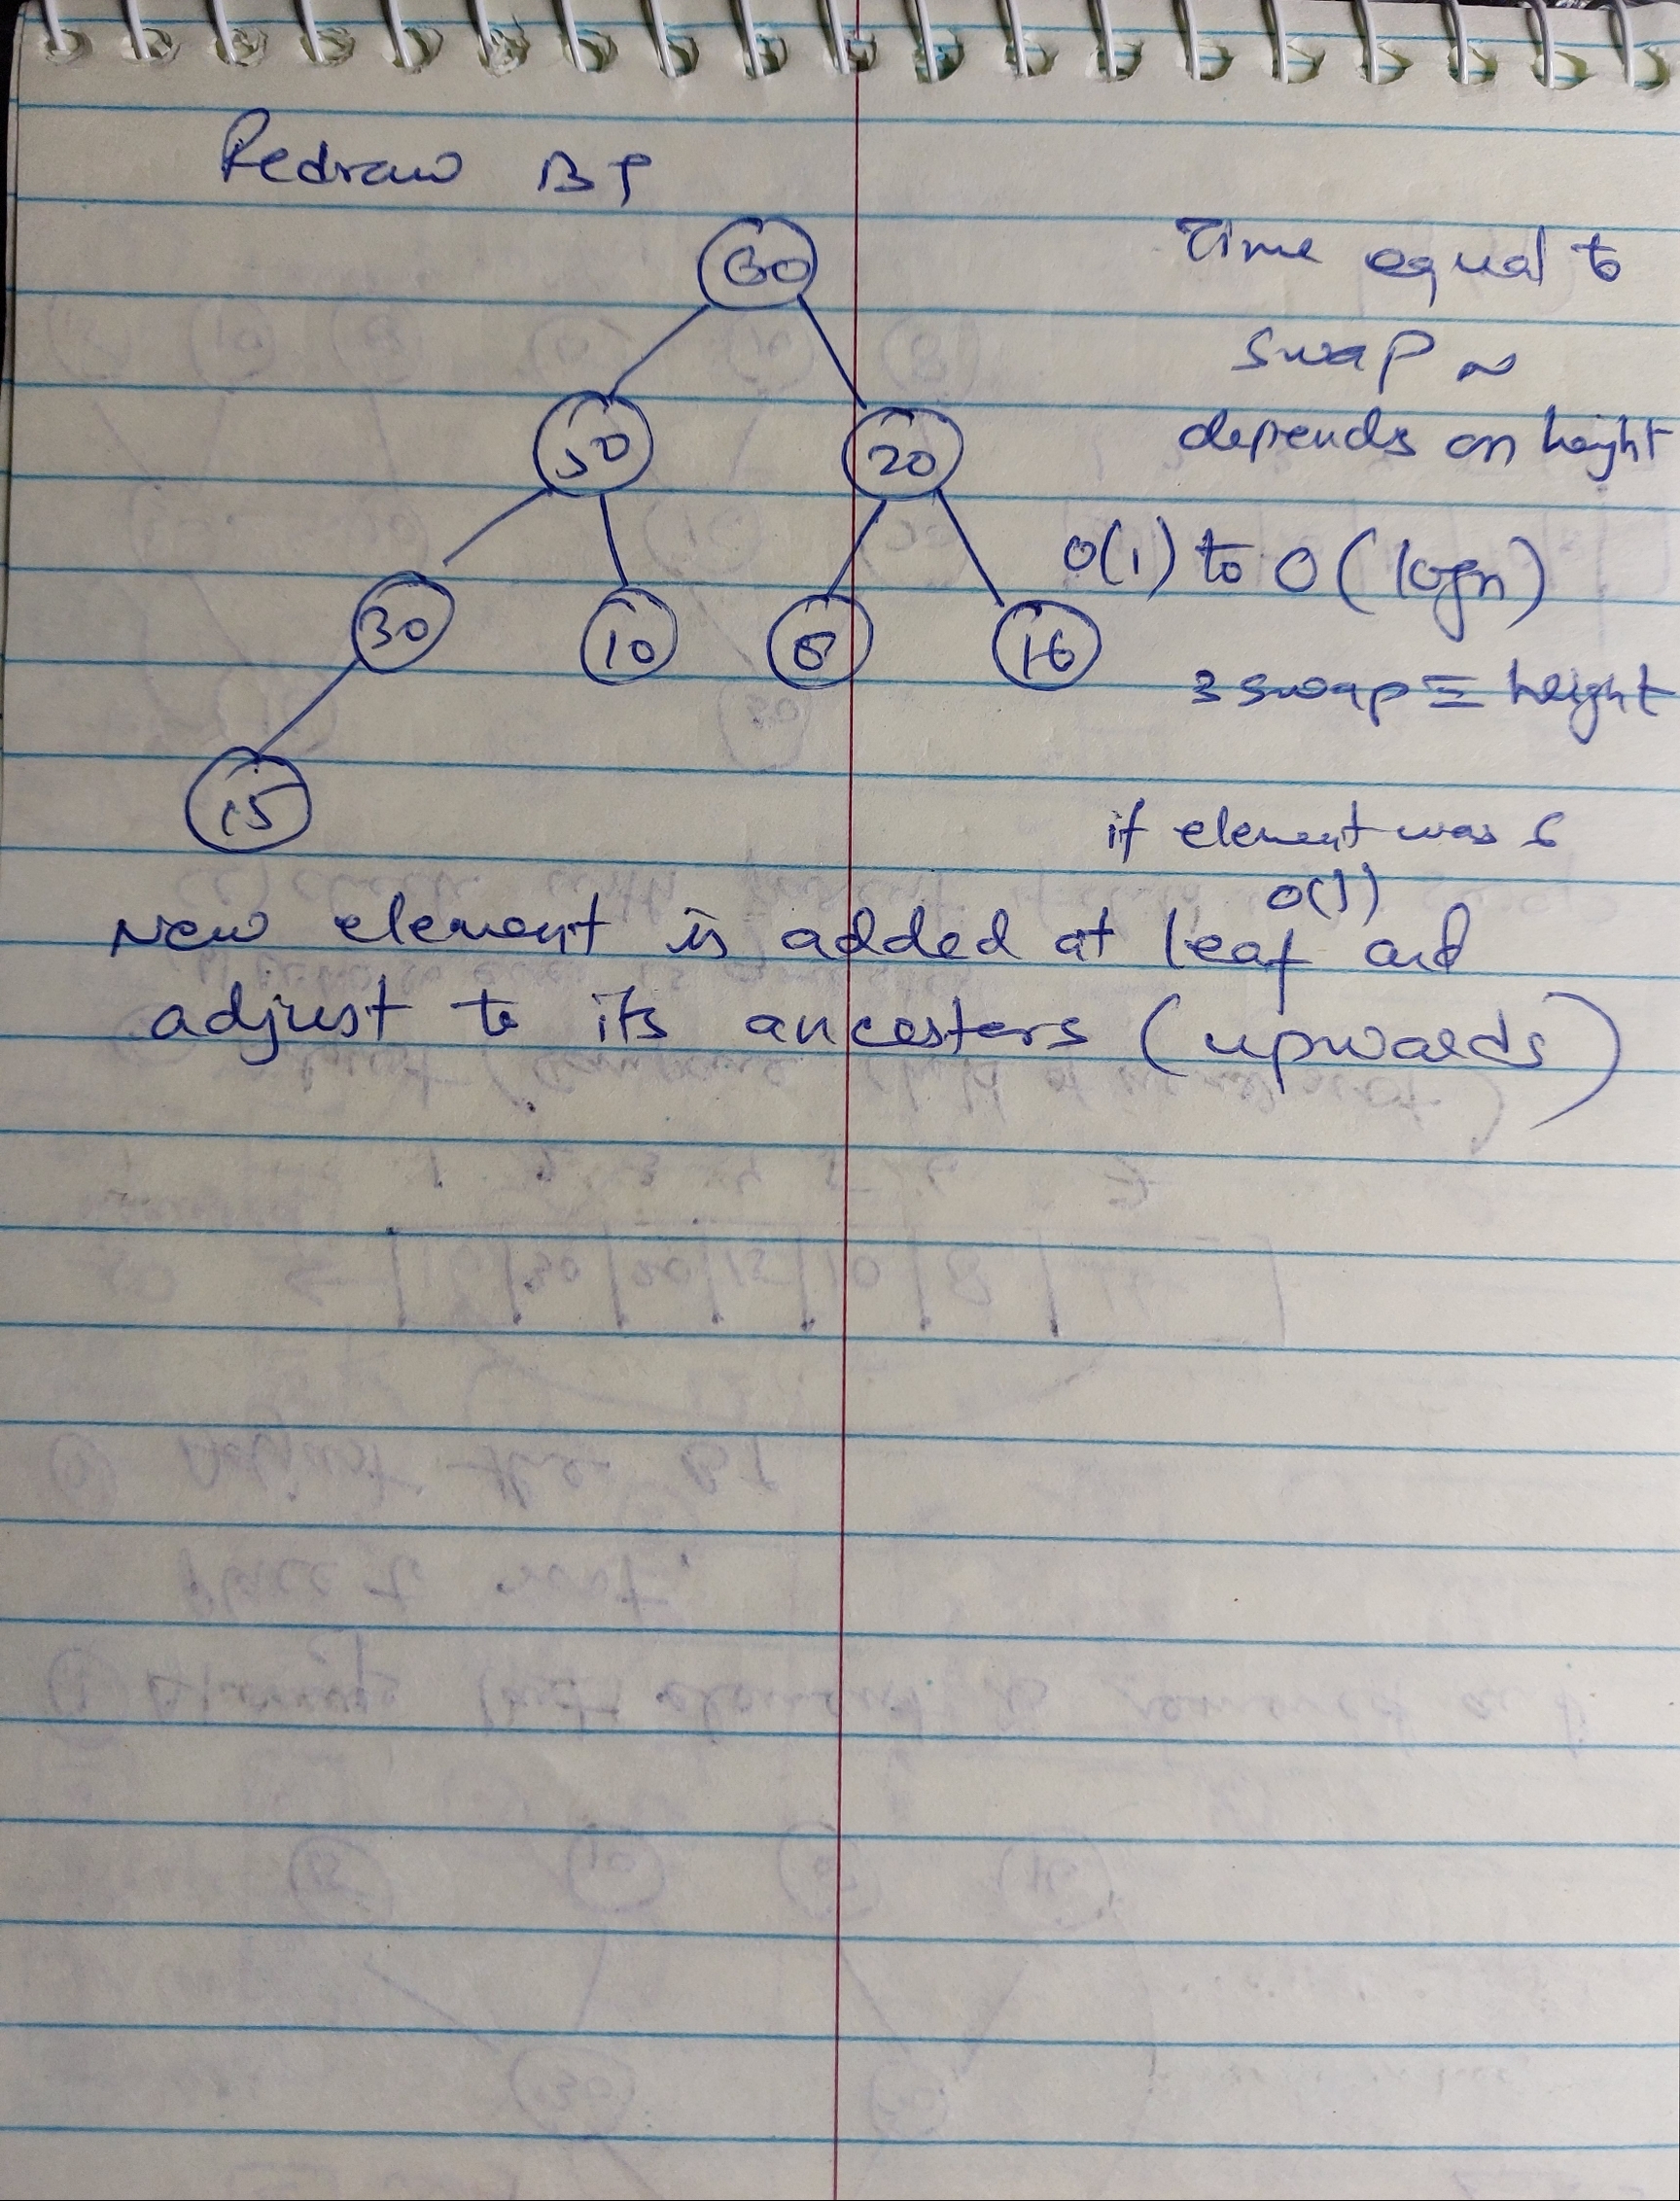 Redraw BT
60
Time equal to
swap ~
50 20
depends on height
O(1) to O(logn)
30 10 8 16
3 swap ≡ height
15
if element was 6
O(1)
New element is added at leaf and
adjust to its ancesters (upwards)